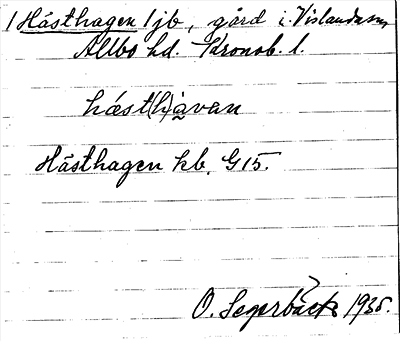 1 Hästhagen 1 jb, gård i Vislanda sn,
Allbo hd. Kronob. l.
hæst(h)àvan
Hästhagen kb. G15.
O. Segerbäck 1935.